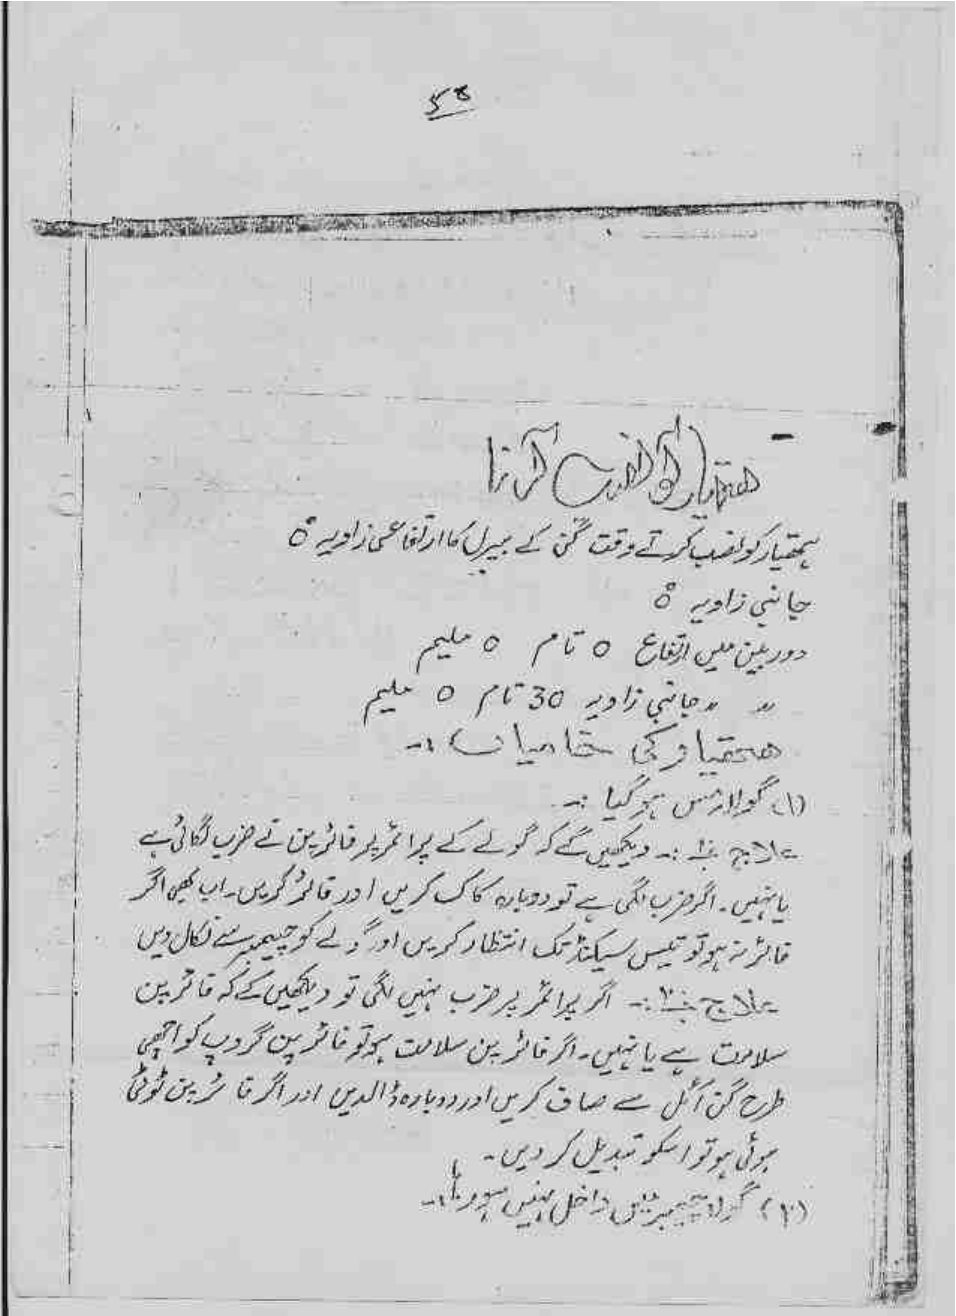 ۵۴
ھتھیار کو نصب کرنا
ہتھیار کو نصب کرتے وقت گن کے بیرل کا ارتفاعی زاویہ °0
جانبی زاویہ °0
دوربین میں ارتفاع 0 تام 0 ملیم
〃 〃 جانبی زاویہ 30 تام 0 ملیم
ھتھیار کی خامیاں :-
(۱) گولا مس ہو گیا :-
علاج نمبر۱ :- دیکھیں گے کہ گولے کے پرائمر پر فائرپن نے ضرب لگائی ہے
یا نہیں۔ اگر ضرب لگی ہے تو دوبارہ کاک کریں اور فائر کریں۔ اب بھی اگر
فائر نہ ہو تو تیس سیکنڈ تک انتظار کریں اور گولے کو چیمبر سے نکال دیں
علاج نمبر۲ :- اگر پرائمر پر ضرب نہیں لگی تو دیکھیں گے کہ فائرپن
سلامت ہے یا نہیں۔ اگر فائرپن سلامت ہو تو فائرپن گروپ کو اچھی
طرح گن آئل سے صاف کریں اور دوبارہ ڈالدیں اور اگر فائرپن ٹوٹی
ہوئی ہو تو اسکو تبدیل کر دیں۔
(۲) گولا چیمبر میں داخل نہیں ہو رہا :-